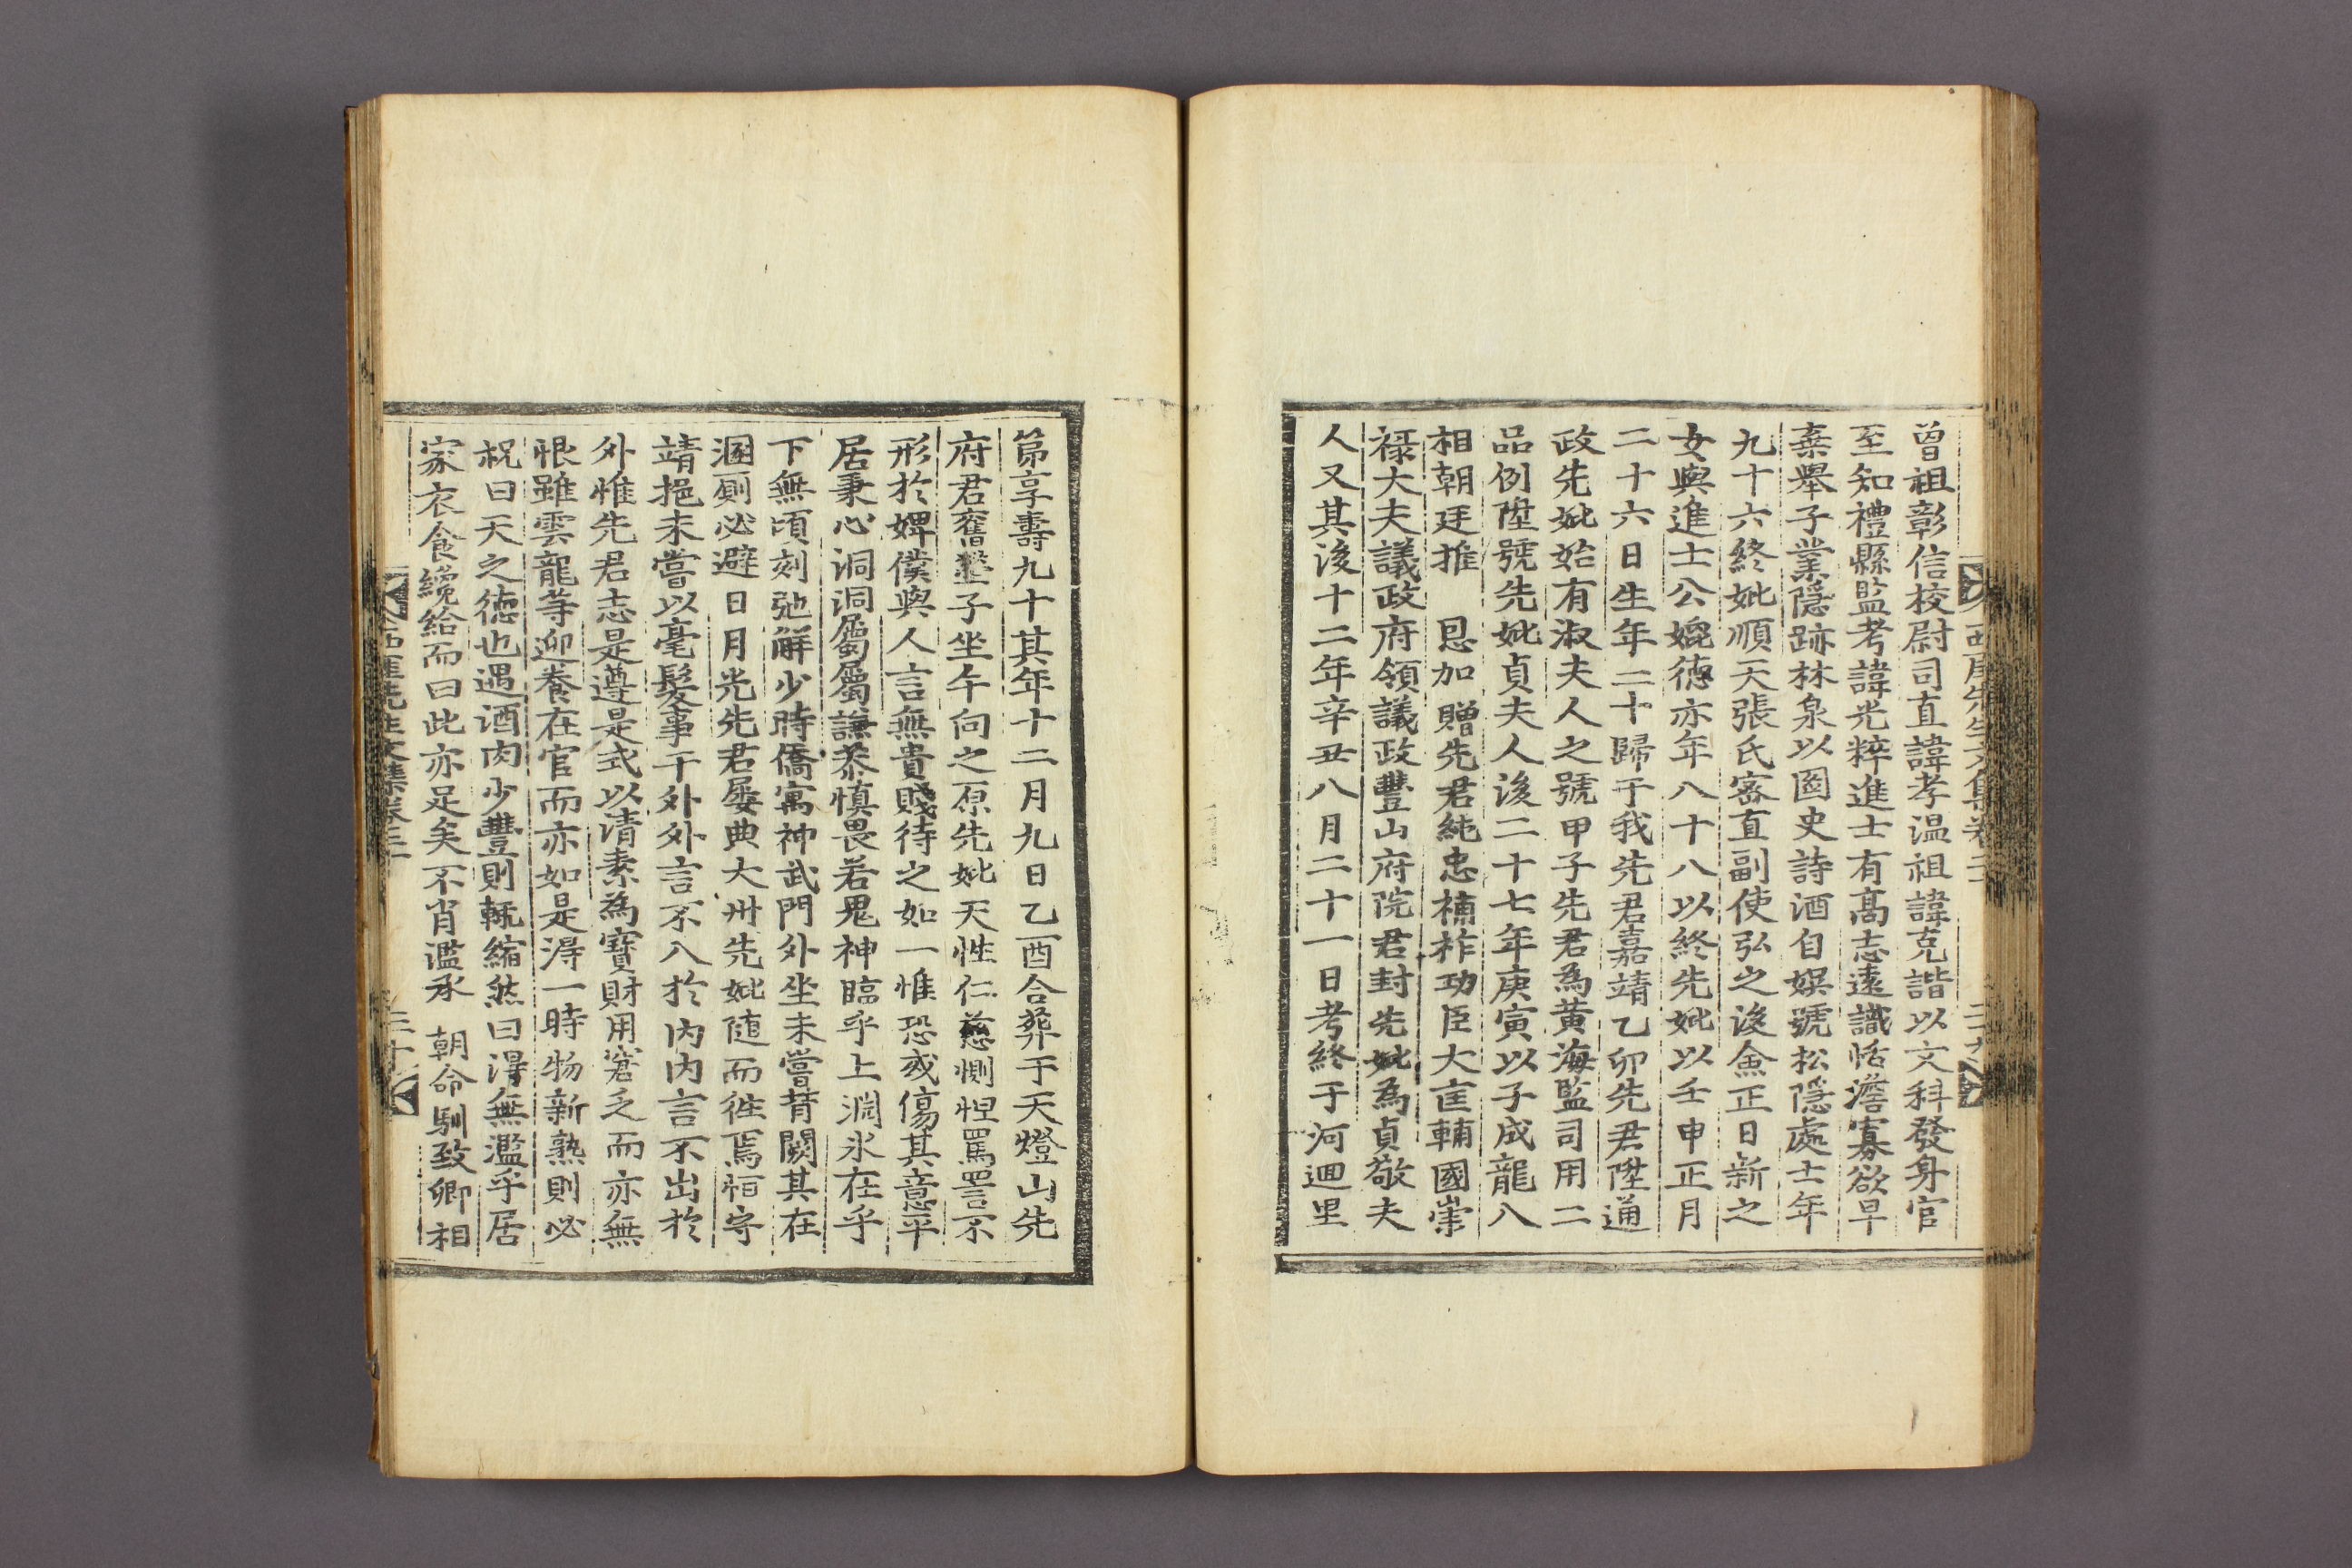 曾祖彰信校尉司直諱孝温祖諱克諧以文科發身官
至知禮縣監考諱光粹進士有髙志遠識恬澹寡欲早
棄舉子業隱跡林泉以圖史詩酒自娛號松隱處士年
九十六終妣順天張氏密直副使弘之後僉正日新之
女與進士公媲德亦年八十八以終先妣以壬申正月
二十六日生年二十歸于我先君嘉靖乙卯先君陞通
政先妣始有淑夫人之號甲子先君為黄海監司用二
品例陞號先妣貞夫人後二十七年庚寅以子成龍入
相朝廷推　恩加　贈先君純忠補祚功臣大匡輔國崇
禄大夫議政府領議政豐山府院君封先妣為貞敬夫
人又其後十二年辛丑八月二十一日考終于河逥里
第享壽九十其年十二月九日乙酉合葬于天燈山先
府君舊塋子坐午向之原先妣天性仁慈惻怛罵詈不
形於婢僕與人言無貴賤待之如一惟恐或傷其意平
居秉心洞洞屬屬謙恭慎畏若鬼神臨乎上淵氷在乎
下無頃刻弛解少時僑寓神武門外坐未嘗背闕其在
溷厠必避日月光先君屡典大州先妣随而徃焉恒守
靖挹未嘗以毫髮事干外外言不入於内内言不出於
外惟先君志是遵是式以清素為寶財用窘乏而亦無
恨雖雲龍等迎養在官而亦如是得一時物新熟則必
祝曰天之德也遇酒肉少豐則輒縮然曰得無濫乎居
家衣食纔給而曰此亦足矣不肖濫承　朝命馴致卿相
西厓先生文集卷二十